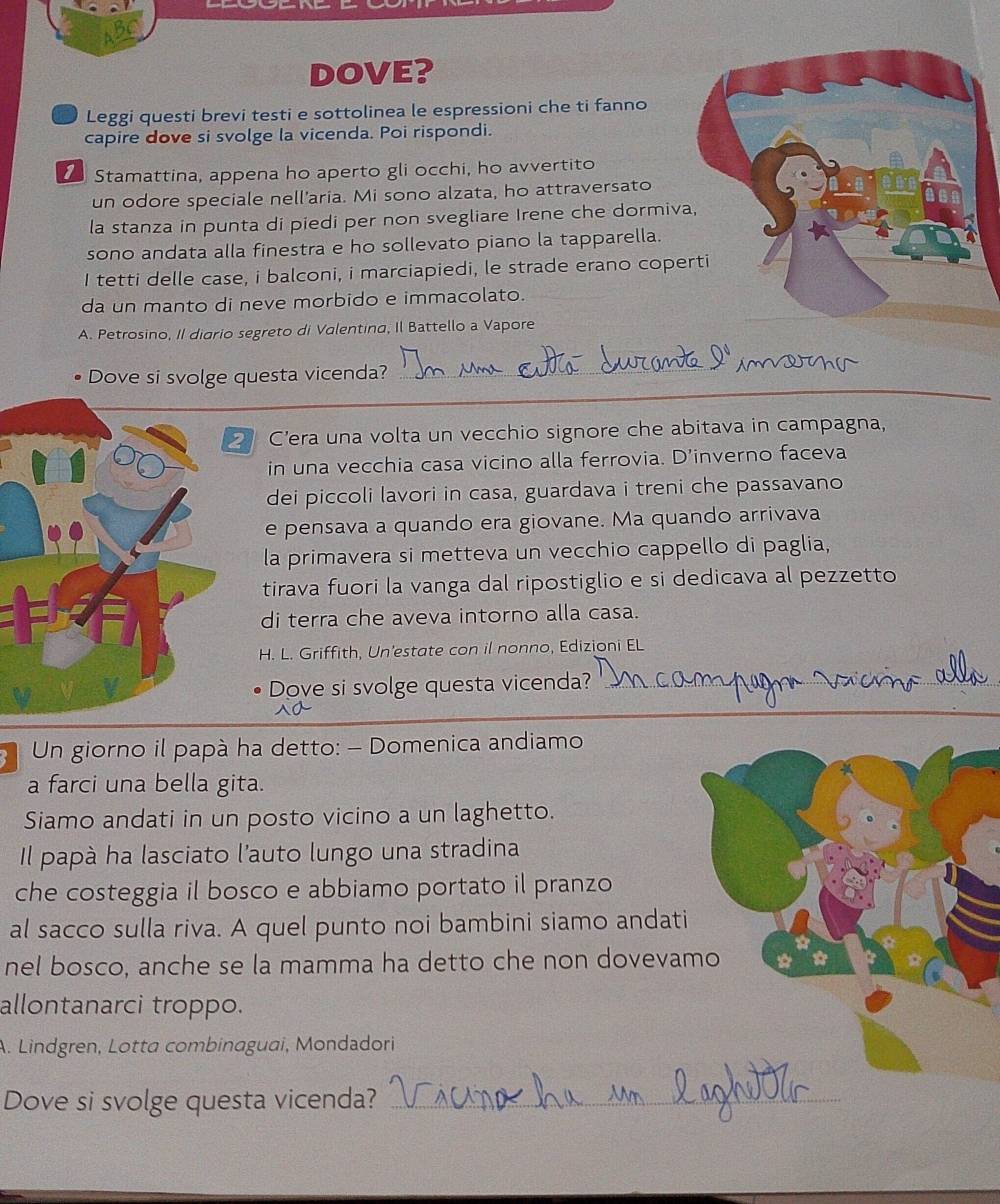 LEGGERE E COMPRENDERE
ABC
DOVE?
Leggi questi brevi testi e sottolinea le espressioni che ti fanno
capire dove si svolge la vicenda. Poi rispondi.
1 Stamattina, appena ho aperto gli occhi, ho avvertito
un odore speciale nell'aria. Mi sono alzata, ho attraversato
la stanza in punta di piedi per non svegliare Irene che dormiva,
sono andata alla finestra e ho sollevato piano la tapparella.
I tetti delle case, i balconi, i marciapiedi, le strade erano coperti
da un manto di neve morbido e immacolato.
A. Petrosino, Il diario segreto di Valentina, Il Battello a Vapore
• Dove si svolge questa vicenda? In una città durante l'inverno
2 C'era una volta un vecchio signore che abitava in campagna,
in una vecchia casa vicino alla ferrovia. D'inverno faceva
dei piccoli lavori in casa, guardava i treni che passavano
e pensava a quando era giovane. Ma quando arrivava
la primavera si metteva un vecchio cappello di paglia,
tirava fuori la vanga dal ripostiglio e si dedicava al pezzetto
di terra che aveva intorno alla casa.
H. L. Griffith, Un'estate con il nonno, Edizioni EL
• Dove si svolge questa vicenda? In campagna vicino alla
ia
3 Un giorno il papà ha detto: – Domenica andiamo
a farci una bella gita.
Siamo andati in un posto vicino a un laghetto.
Il papà ha lasciato l'auto lungo una stradina
che costeggia il bosco e abbiamo portato il pranzo
al sacco sulla riva. A quel punto noi bambini siamo andati
nel bosco, anche se la mamma ha detto che non dovevamo
allontanarci troppo.
A. Lindgren, Lotta combinaguai, Mondadori
Dove si svolge questa vicenda? Vicino ha un laghetto